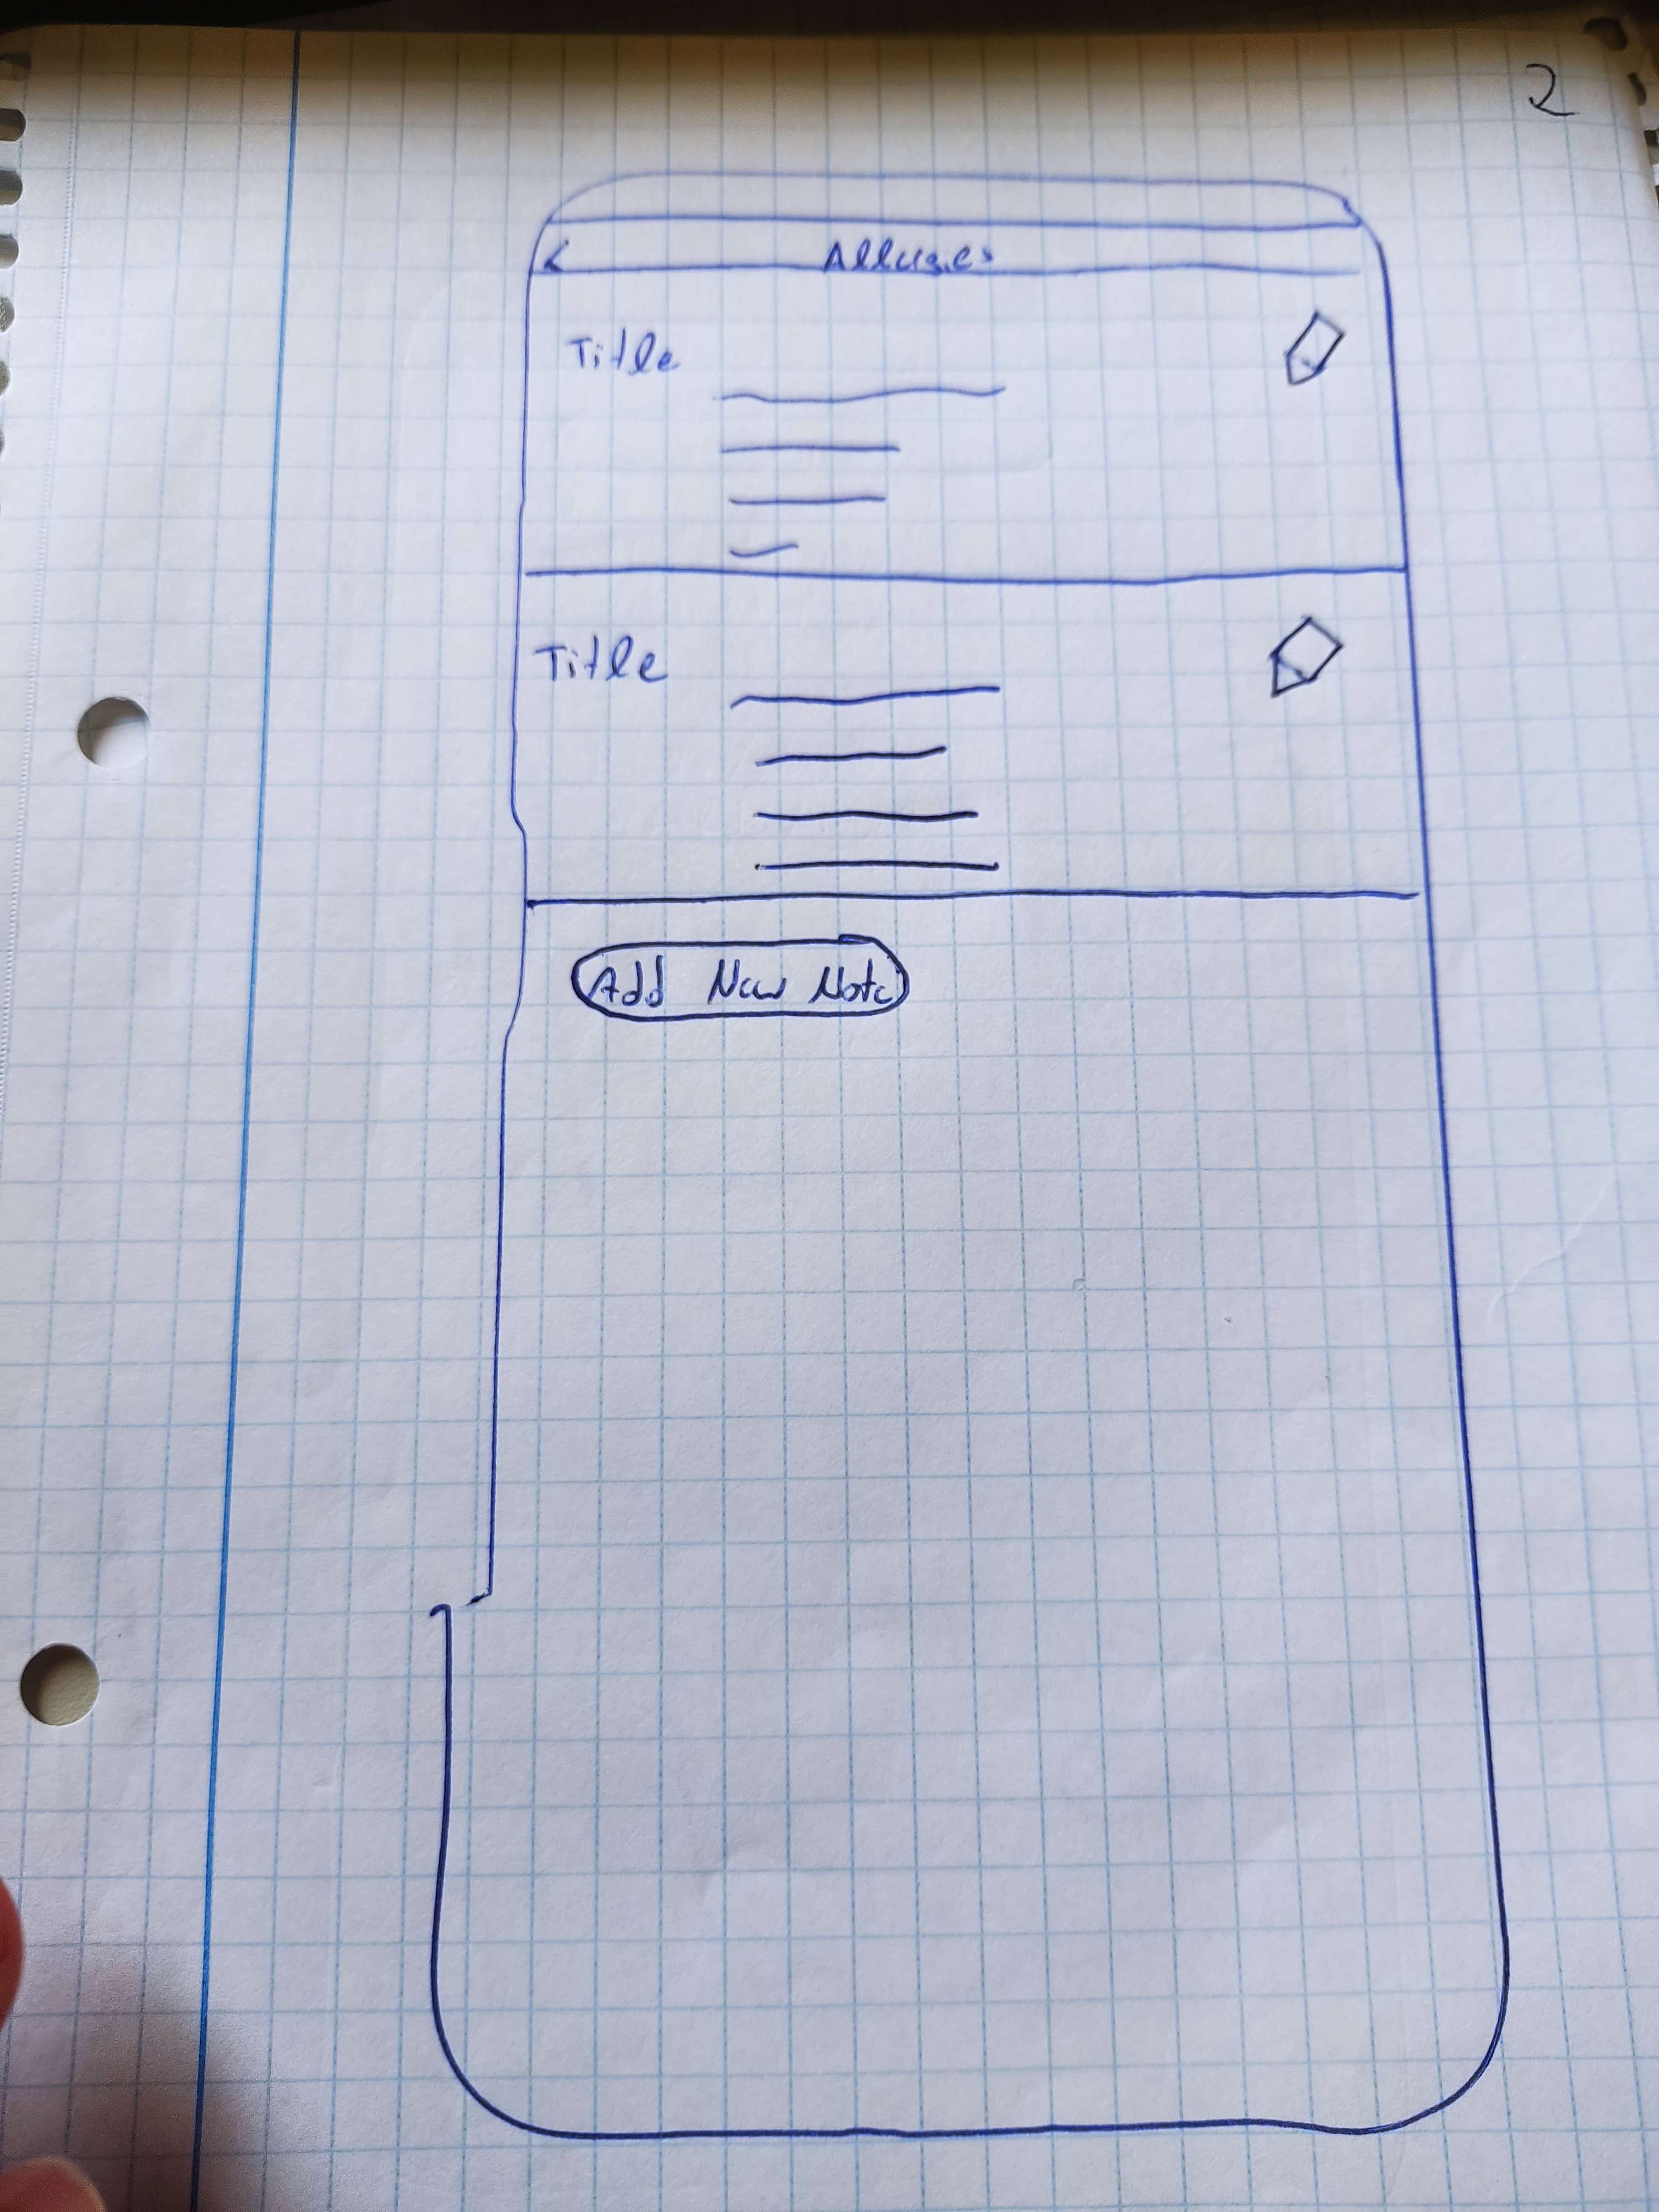 2
< Allergies
Title
Title
Add New Note